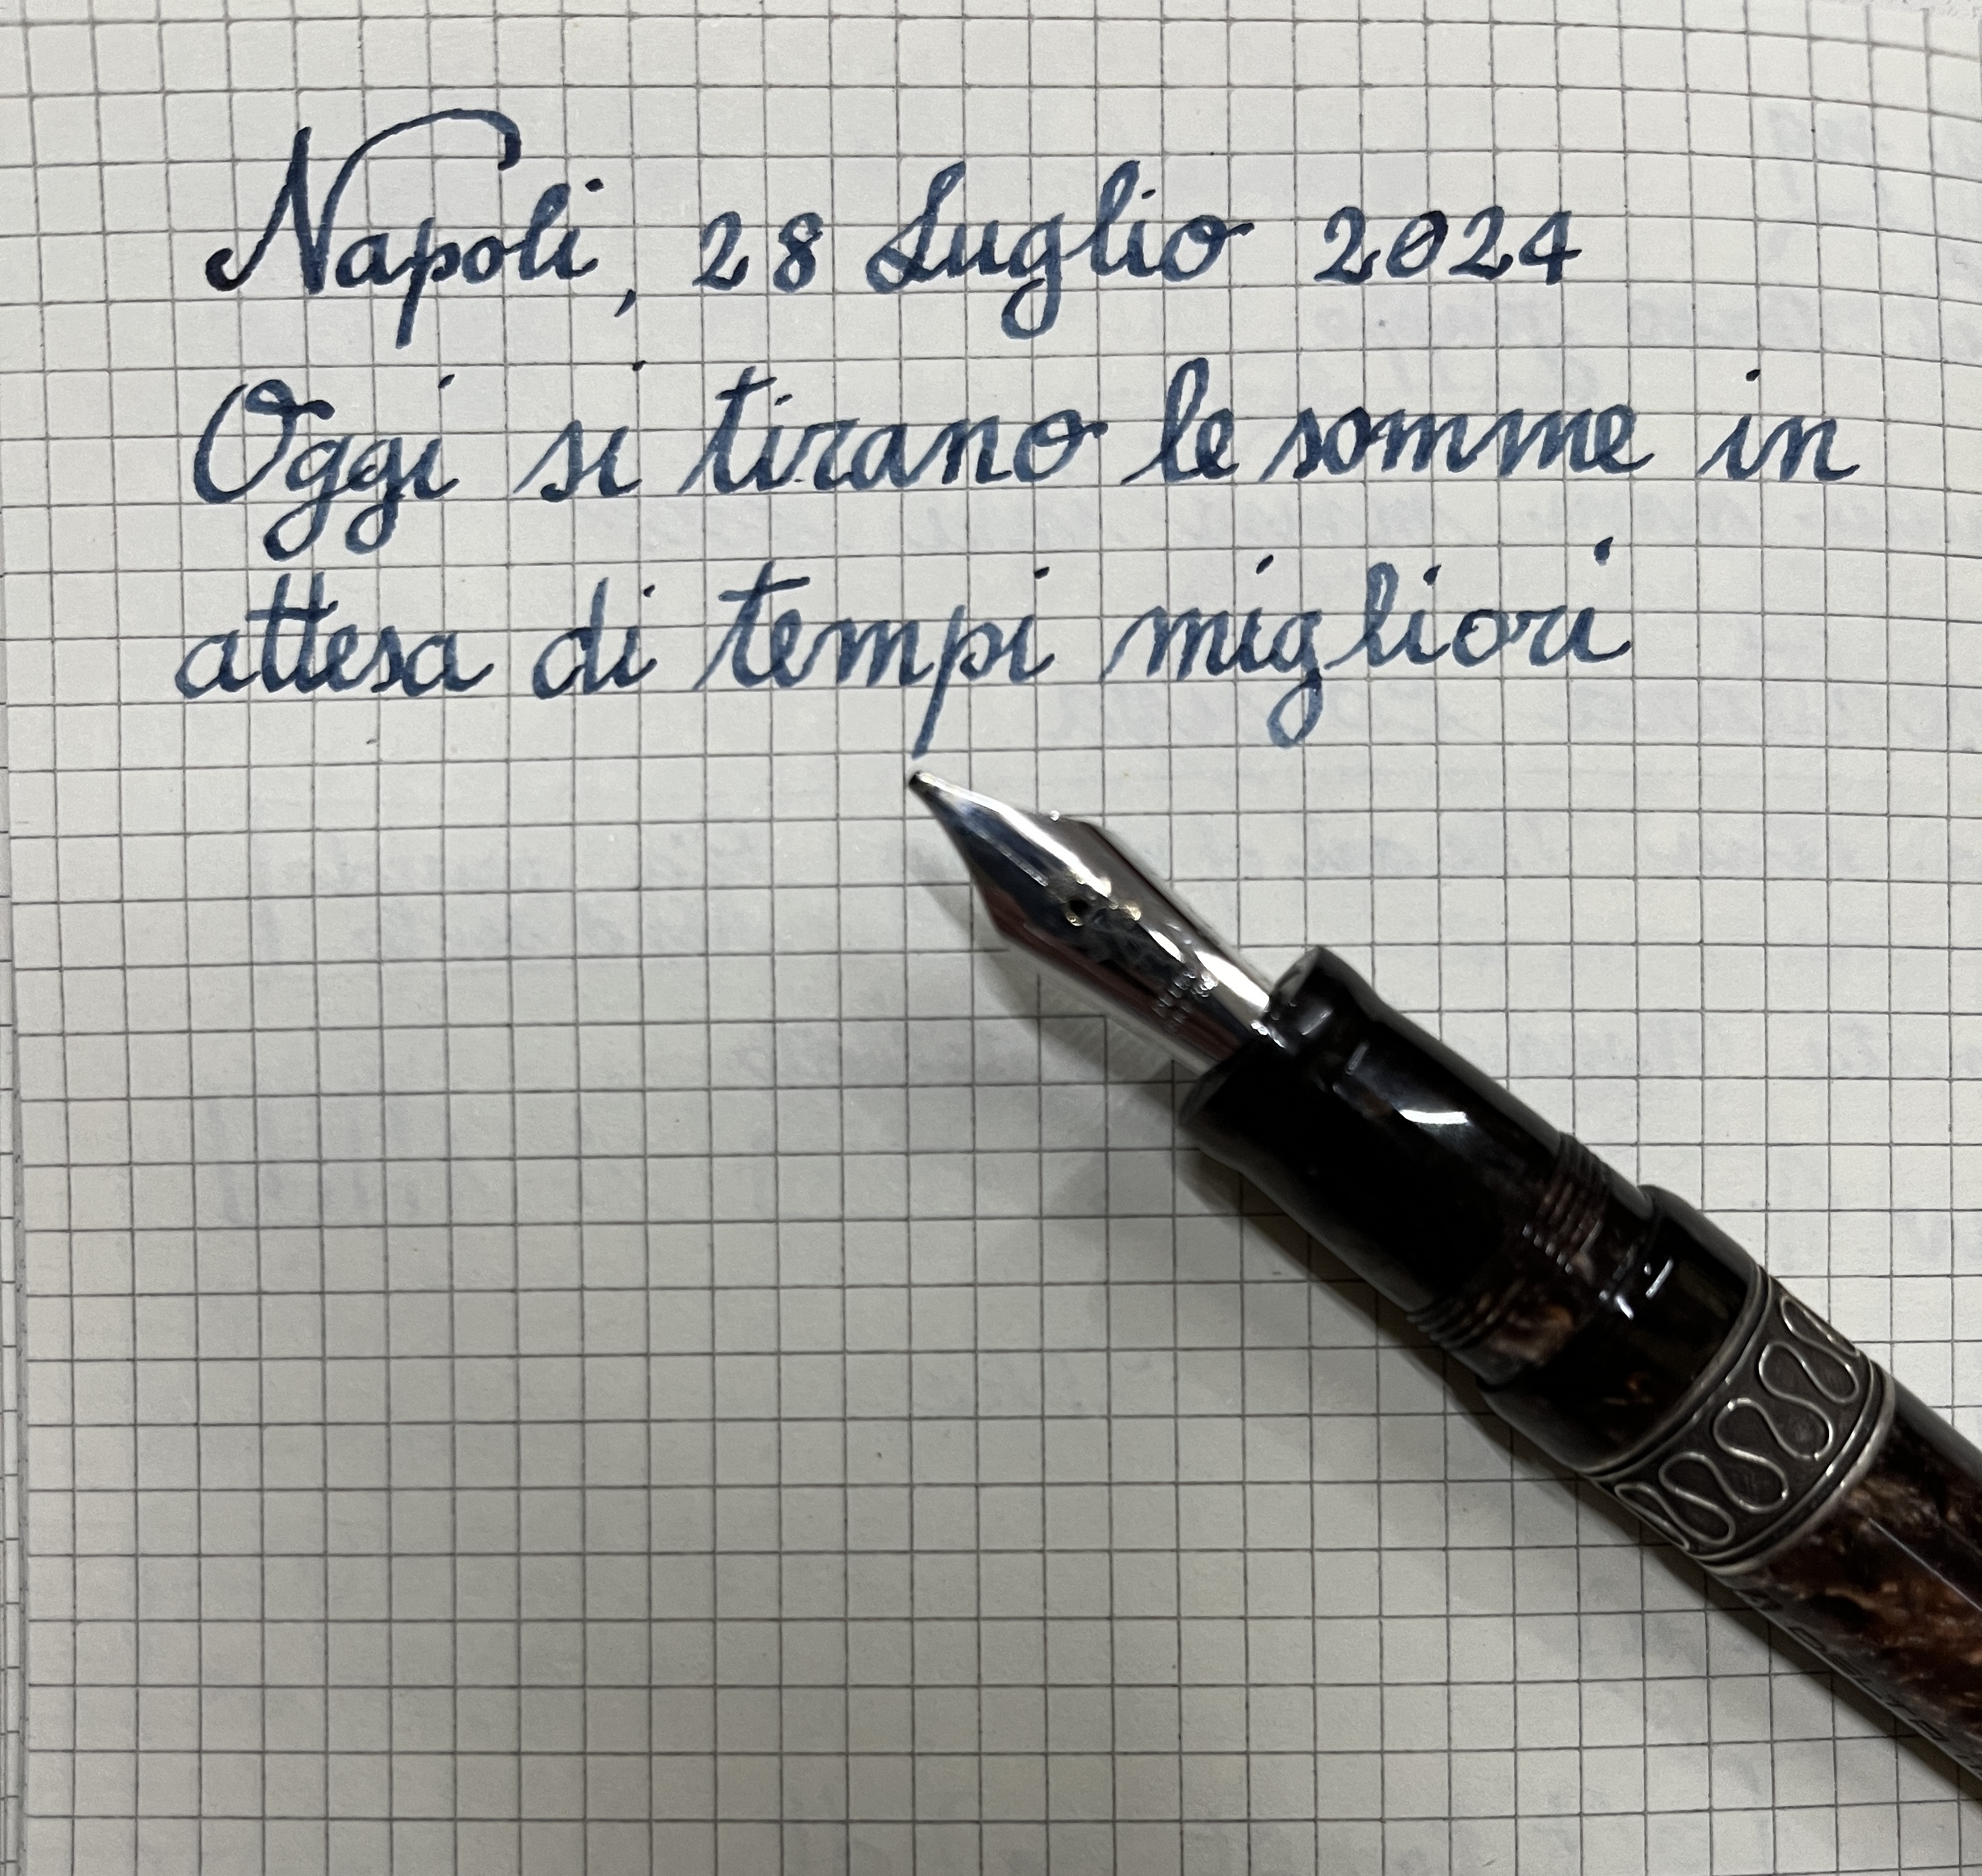 Napoli, 28 Luglio 2024
Oggi si tirano le somme in
attesa di tempi migliori